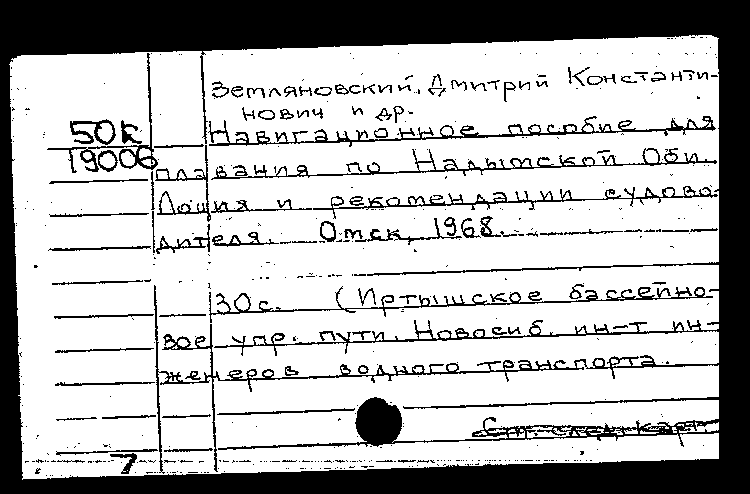 Земляновский, Дмитрий Константи-
нович и др.
50к Навигационное пособие для
19006 плавания по Надымской Оби.
Лоция и рекомендации судово-
дителя. Омск, 1968.
30с. (Иртышское бассейно-
вое упр. пути. Новосиб. ин-т ин-
женеров водного транспорта.
См. след. карт.
7